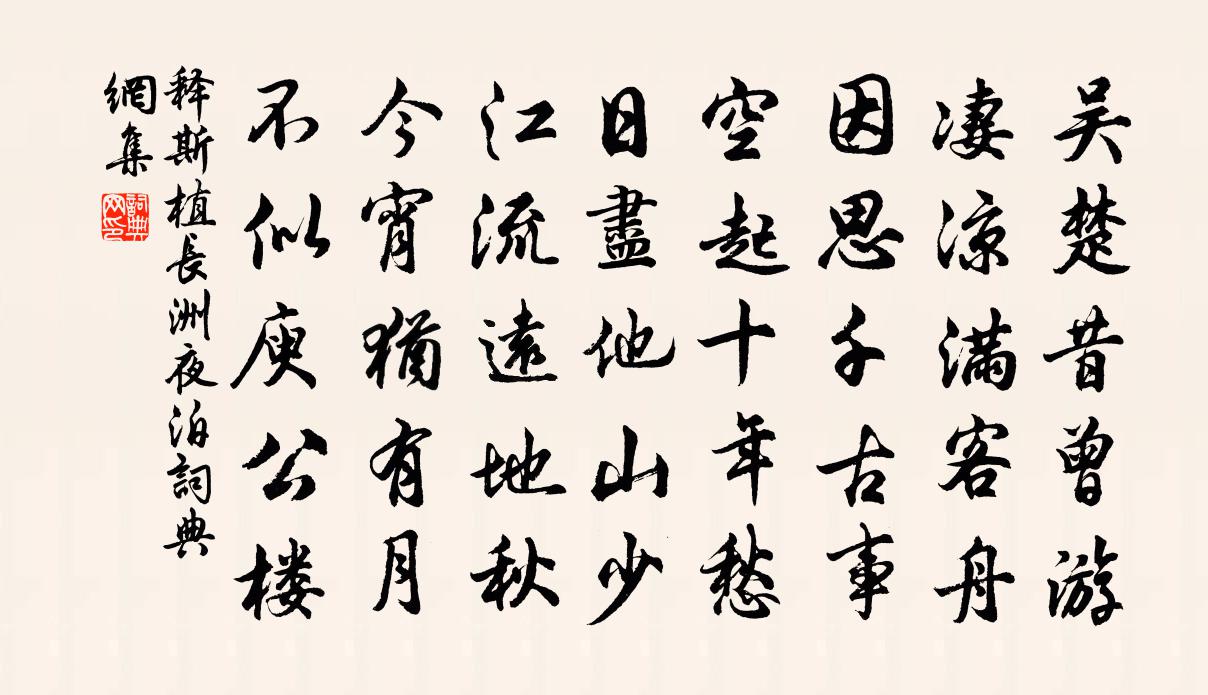 吴楚昔曾游
凄凉满客舟
因思千古事
空起十年愁
日盡他山少
江流遠地秋
今宵猶有月
不似庾公楼
释斯植長洲夜泊詞典
網集
詞典网印